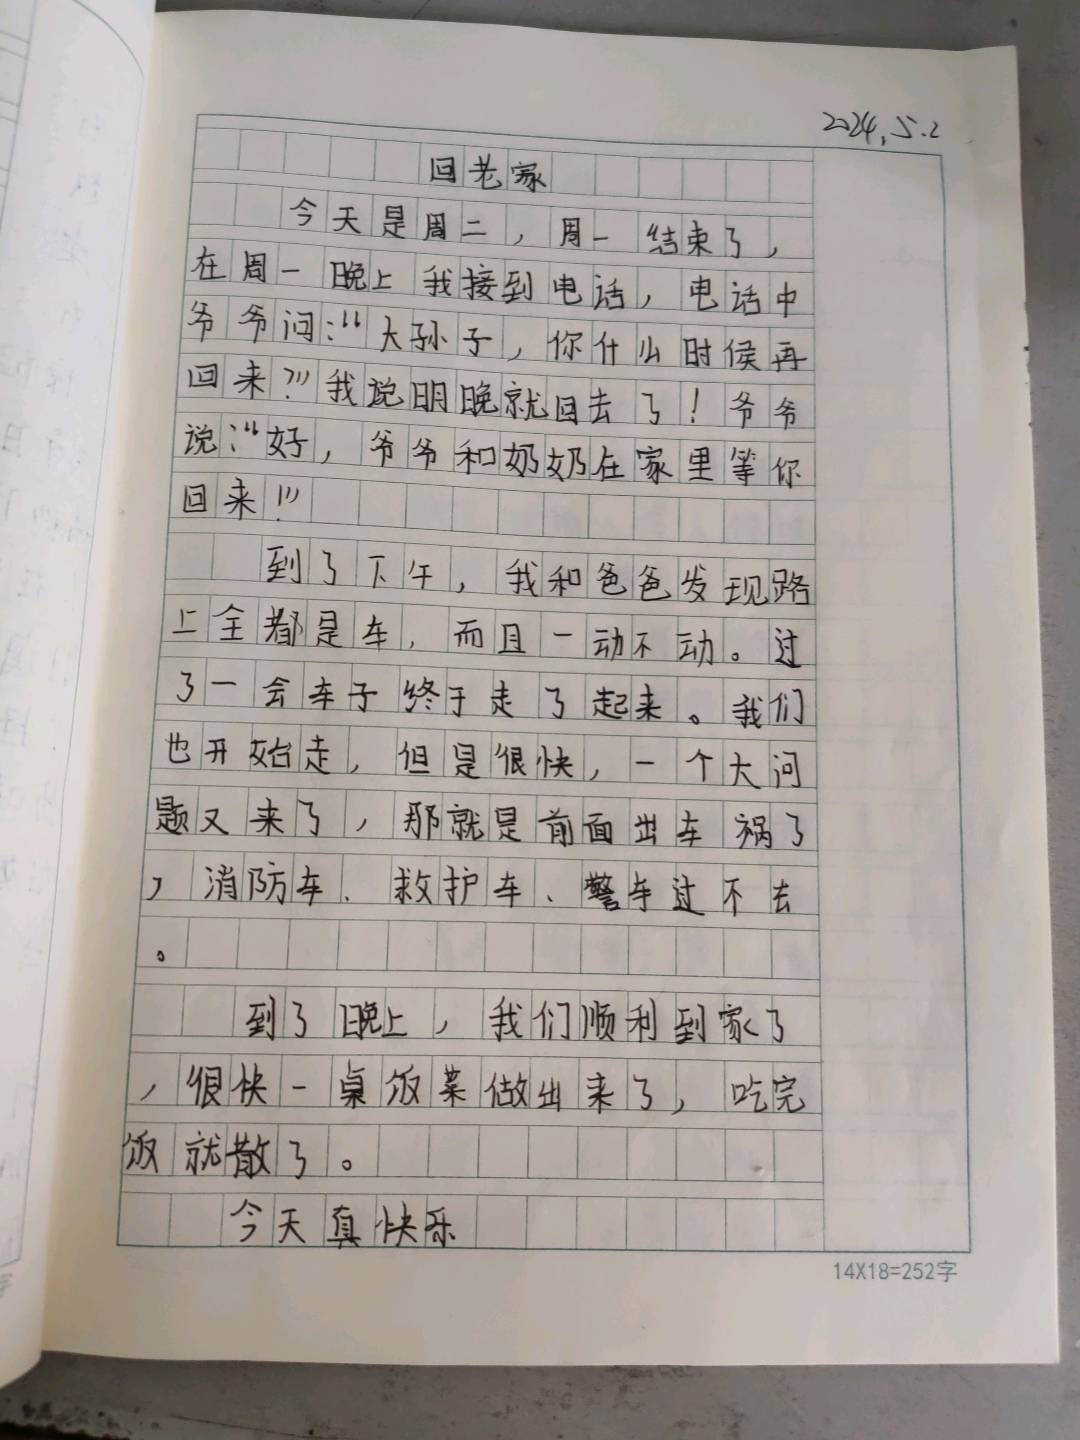 2024.5.2
回老家
今天是周二，周一结束了，
在周一晚上我接到电话，电话中
爷爷问：“大孙子，你什么时候再
回来？”我说明晚就回去了！爷爷
说：“好，爷爷和奶奶在家里等你
回来！”
到了下午，我和爸爸发现路
上全都是车，而且一动不动。过
了一会车子终于走了起来。我们
也开始走，但是很快，一个大问
题又来了，那就是前面出车祸了
，消防车、救护车、警车过不去
。
到了晚上，我们顺利到家了
，很快一桌饭菜做出来了，吃完
饭就散了。
今天真快乐
14X18=252字